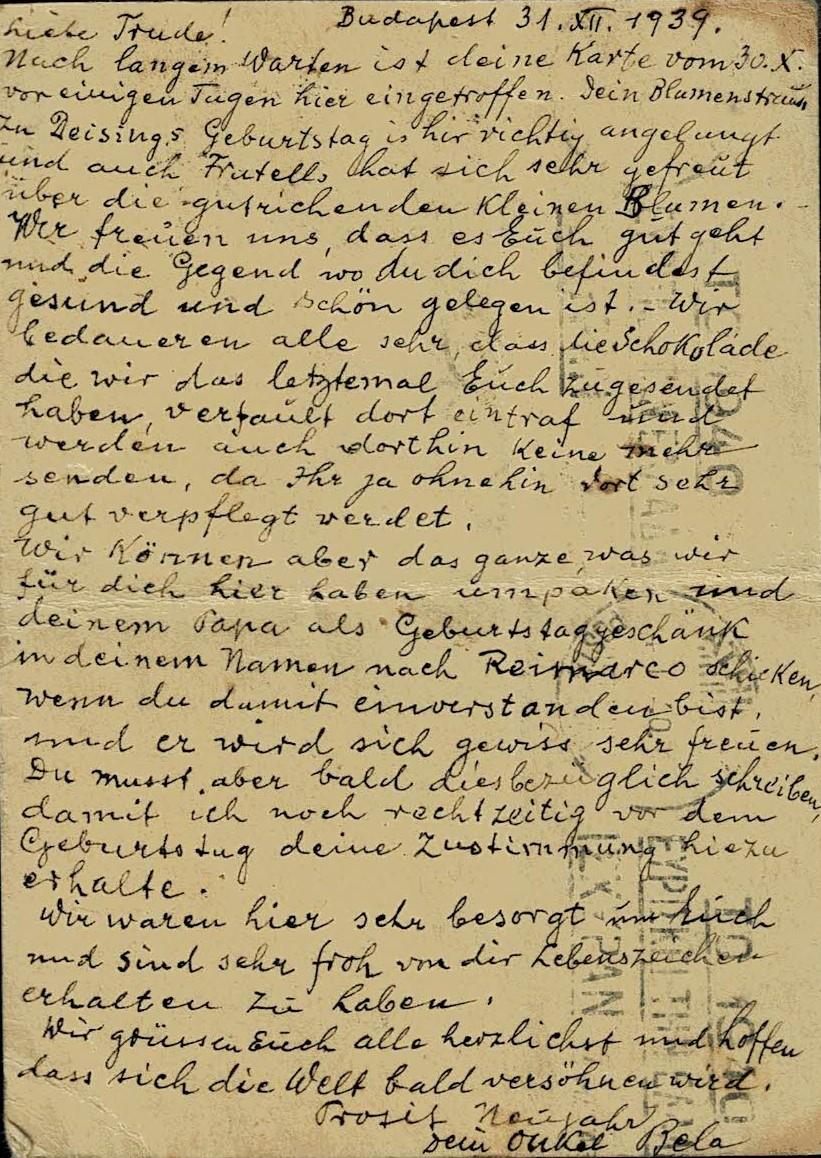 Liebe Trude! Budapest 31. XII. 1939.
Nach langem Warten ist deine Karte vom 30. X.
vor einigen Tagen hier eingetroffen. Dein Blumenstrauss
zu Deisings Geburtstag is hir richtig angelangt
und auch Fratello hat sich sehr gefreut
über die gutrichenden kleinen Blumen. -
Wir freuen uns, dass es Euch gut geht
und die Gegend wo du dich befindest
gesund und schön gelegen ist. - Wir
bedaueren alle sehr, dass die Schokolade
die wir das letztemal Euch zugesendet
haben, verfault dort eintraf und
werden auch dorthin keine mehr
senden, da Ihr ja ohnehin dort sehr
gut verpflegt werdet.
Wir können aber das ganze, was wir
für dich hier haben umpaken und
deinem Papa als Geburtstaggeschänk
in deinem Namen nach schicken,
wenn du damit einverstanden bist,
und er wird sich gewiss sehr freuen.
Du musst aber bald diesbezüglich schreiben,
damit ich noch rechtzeitig vor dem
Geburtstag deine Zustimmung hiezu
erhalte.
Wir waren hier sehr besorgt um Euch
und sind sehr froh von dir Lebenszeichen
erhalten zu haben.
Wir grüssen Euch alle herzlichst und hoffen
dass sich die Welt bald versöhnen wird.
Prosit Neujahr
Dein Onkel Bela